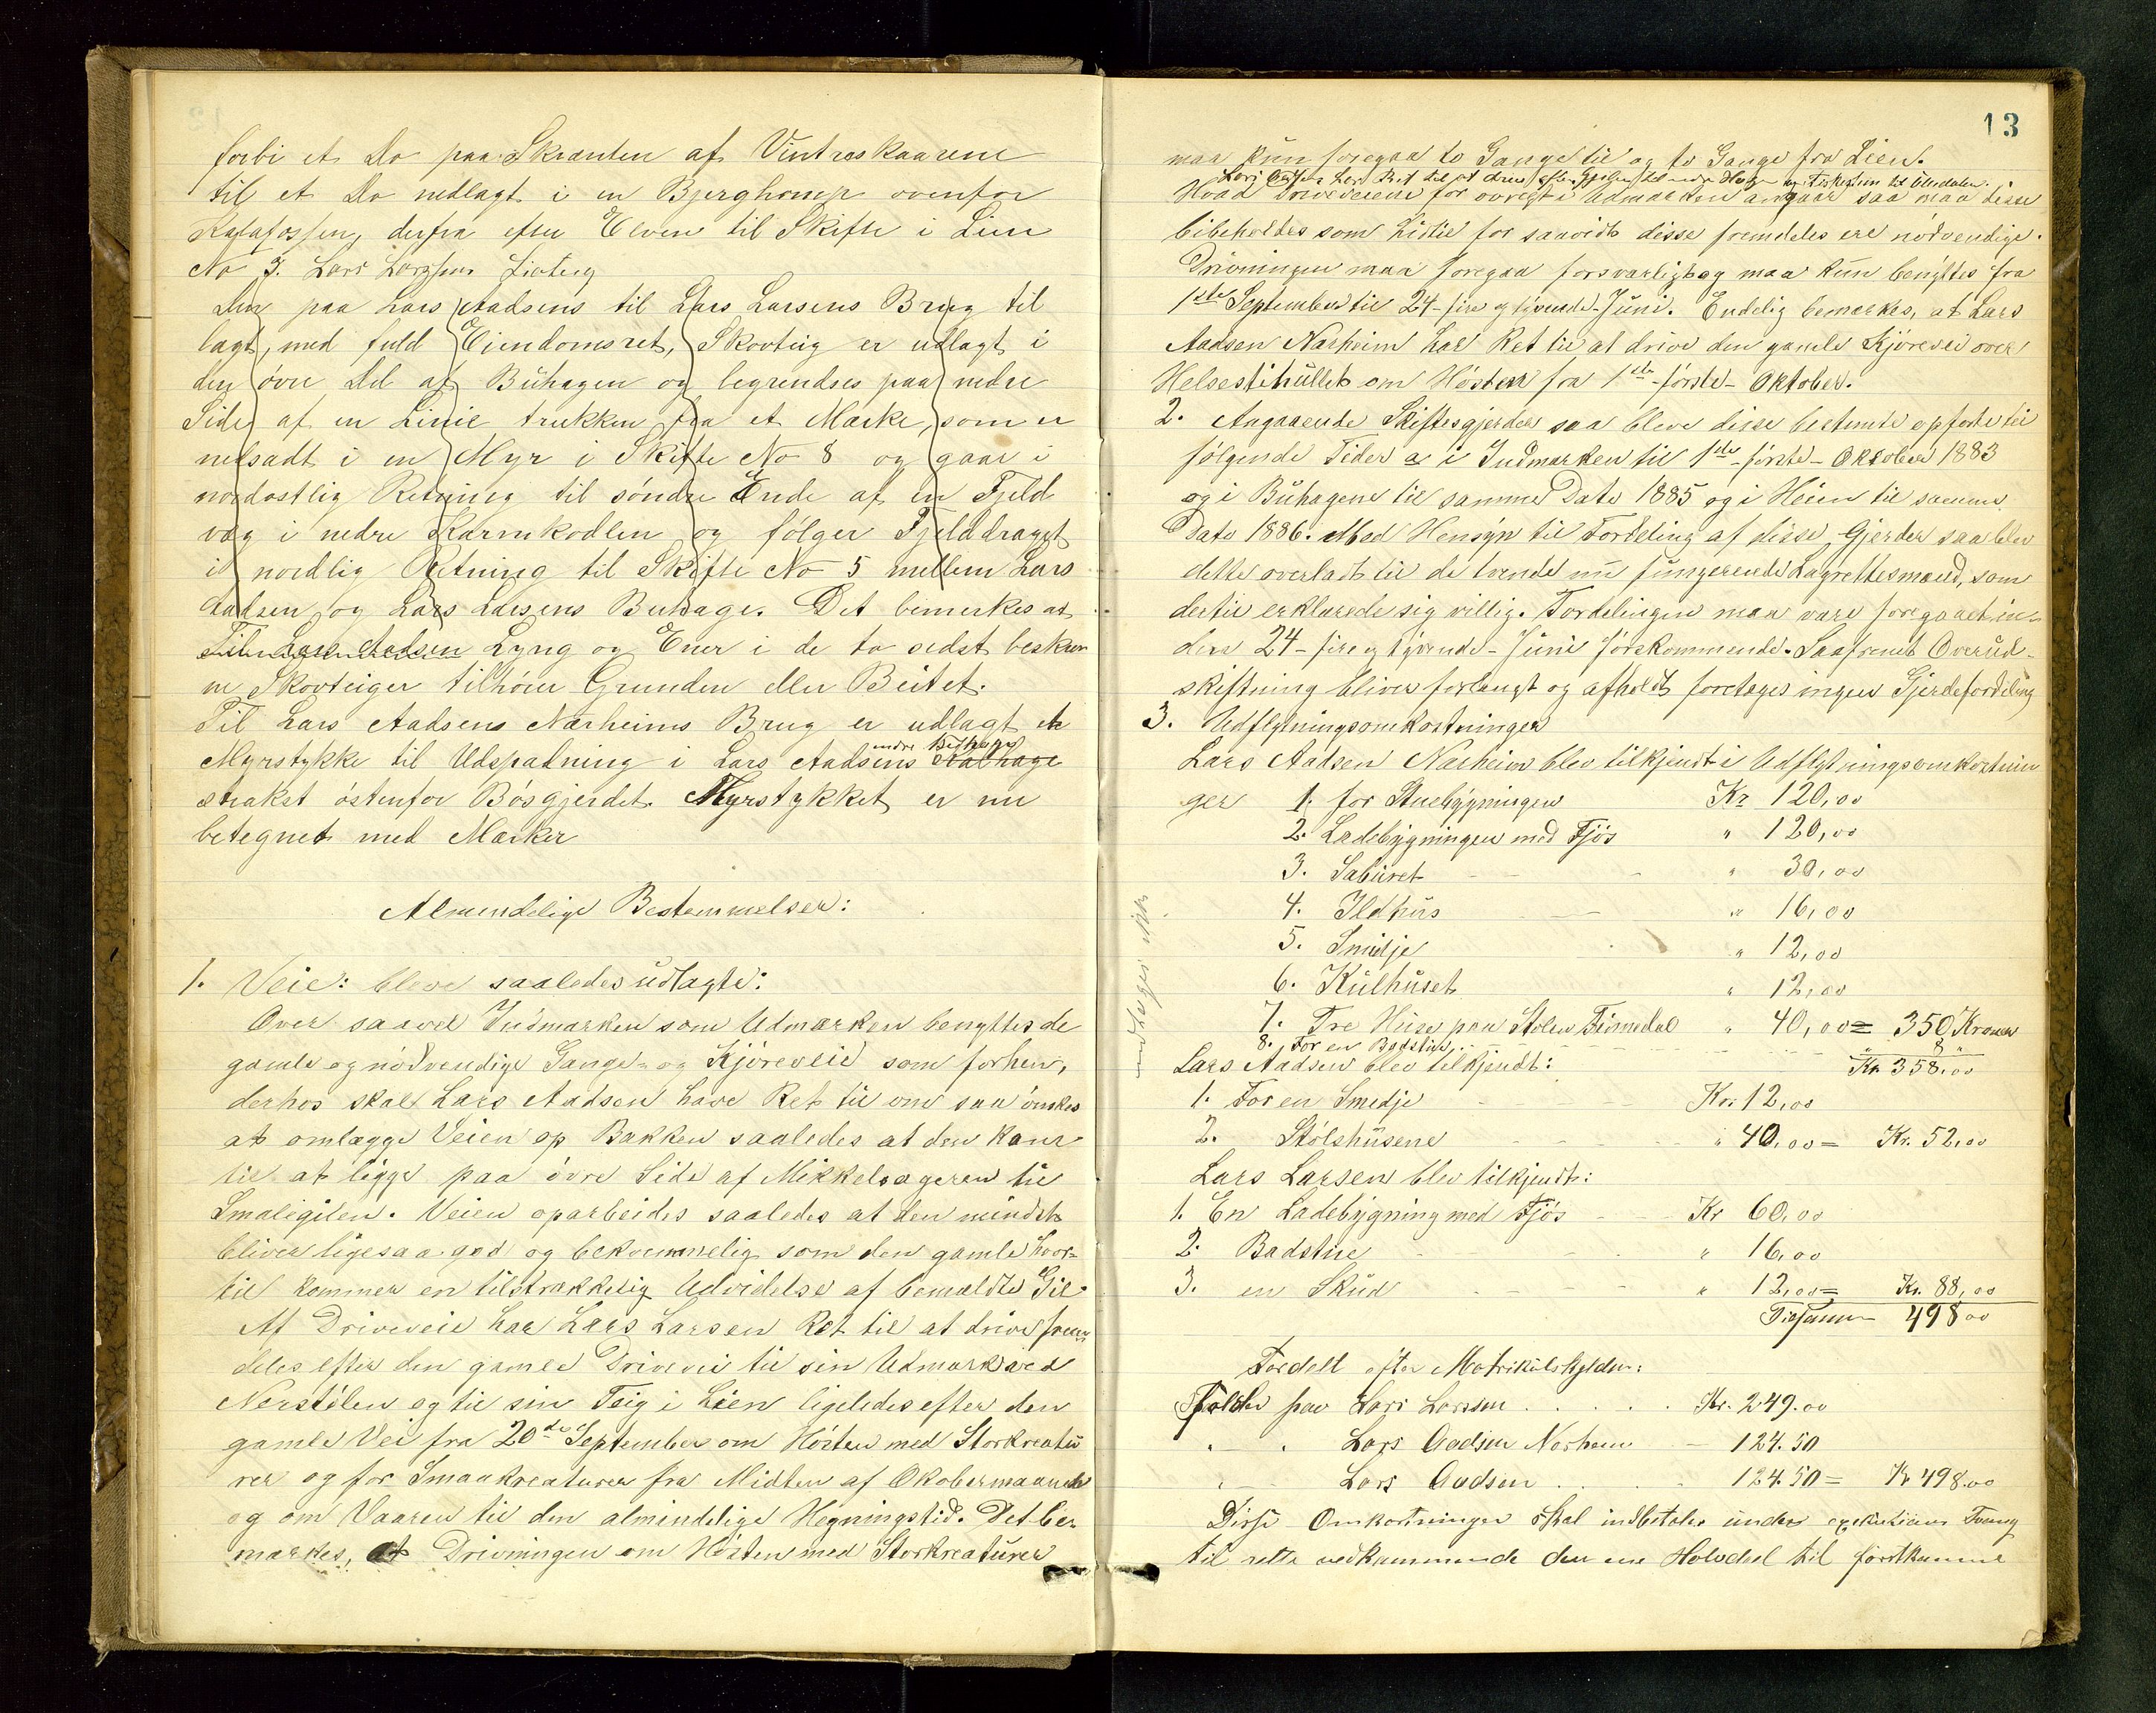 forbi et Do paa Skranten af Vintreskaarene
til et Do nedlagt i en Bjerghomp ovenfor
derfra efter Elven til Skifte i Lien
No 3. Lars Larssens
Den paa Lars Aadsens til Lars Larsens Brug til
lagt, med fuld Eiendomsret, Skovteig er udlagt i
den øvre Del af Buhagen og begrendses paa nedre
Side af en Linie trukken fra et Mærke, som er
nedsadt i en Myr i Skifte No 8 og gaar i
nordostlig Retning til søndre Ende af en Fjeld
væg i nedre Karmkodlen og følger Fjelddraget
i nordlig Retning til Skifte No 5 mellem Lars
Aadsen og Lars Larsens Buhage. Det bemerkes at
Til Lars Aadsen Lyng og Ener i de to sidst beskrev
ne Skovteiger tilhører Grunden eller Beitet.
Til Lars Aadsens Narheims Brug er udlagt et
nedre Buhage
Myrstykke til Udspadning i Lars Aadsens Stølhage
strakst østenfor Bøsgjerdet. Myrstykket er nu
betegnet med Mærker
Almindelige Bestemmelser:
1. Veie: bleve saaledes udlagte:
Over saavel Indmarken som Udmarken benyttes de
gamle og nødvendige Gange- og Kjøreveie som forhen,
derhos skal Lars Aadsen have Ret til om saa ønskes
at omlægge Veien op Bakken saaledes at den kom̄er
til at ligge paa øvre Side af Mikkelsageren til
Smalegilen. Veien oparbeides saaledes at den mindst
bliver ligesaa god og bekvemmelig som den gamle hvor-
til kommer en tilstrækkelig Udvidelse af bemældte Gil-
Af Driveveie har Lars Larsen Ret til at drive frem
deles efter den gamle Drivevei til sin Udmark ved
Nerstølen og til sin Teig i Lien ligeledes efter den
gamle Vei fra 20de September om Høsten med Storkreatu
rer og for Smaakreaturer fra Midten af Okobermaaned
og om Vaaren til den almindelige Hegningstid. Det be-
mærkes, at Drivningen om Høsten med Storkreaturer
13
maa kun foregaa to Gange til og to Gange fra Lien.
Hvad Driveveiene for øvrigt i Udmarken angaar saa maa disse
bibeholdes som hidtil for saavidt disse fremdeles ere nødvendige.
Drivningen maa foregaa forsvarligt og maa kun benyttes fra
1ste September til 24-fire og tyvende-Juni. Endelig bemærkes, at Lars
Aadsen Narheim har Ret til at drive den gamle Kjørevei over
Helsestihullet om Høsten fra 1ste-første-Oktober.
2. Angaaende Skiftesgjerder saa bleve disse bestemte opførte til
følgende Tider a i Indmarken til 1ste-første-Oktober 1883
og i Buhagene til samme Dato 1885 og i Heien til samme
Dato 1886. Med Hensyn til Fordeling af disse Gjerder saa blev
dette overladt til de tvende nu fungerende Lagrettesmænd, som
dertil erklærede sig villig. Fordelingen maa være foregaaet in-
den 24-fire og tyvende-Juni førskommende. Saafremt Overud-
skiftning bliver forlangt og afholdt foretages ingen Gjerdefordeling
3. Udflytningsomkostninger
Lars Aadsen Narheim blev tilkjendt i Udflytningsomkostnin
ger 1. for Stuebygningen Kr 120,00
2. Ladebygningen med Fjøs " 120,00
3. Saburet " 30,00
4. Ildhus " 16,00
5. Smidje " 12,00
6. Kulhuset " 12,00
7. Tre Huse paa Stølen Fiomedal " 40,00 = 350 Kroner
8. For en Badstue " 8 "
Lars Aadsen blev tilkjendt: Kr 358.00
1. For en Smedje Kr. 12,00
2. Stølshusene " 40,00 = Kr. 52,00
Lars Larsen blev tilkjendt:
1. En Ladebygning med Fjøs Kr 60,00
2. Badstue " 16,00
3. en Skud " 12,00 = Kr. 88,00
Tilsamm 498 00
Fordelt efter Matrikulskylden:
Falder paa Lars Larssen Kr. 249.00
" " Lars Aadsen Norheim 124.50
" Lars Aadsen 124.50 = Kr 498.00
Disse Omkostninger skal indbetales under exekutions Tvang
til rette vedkommende den ene Halvdel til førstkomme